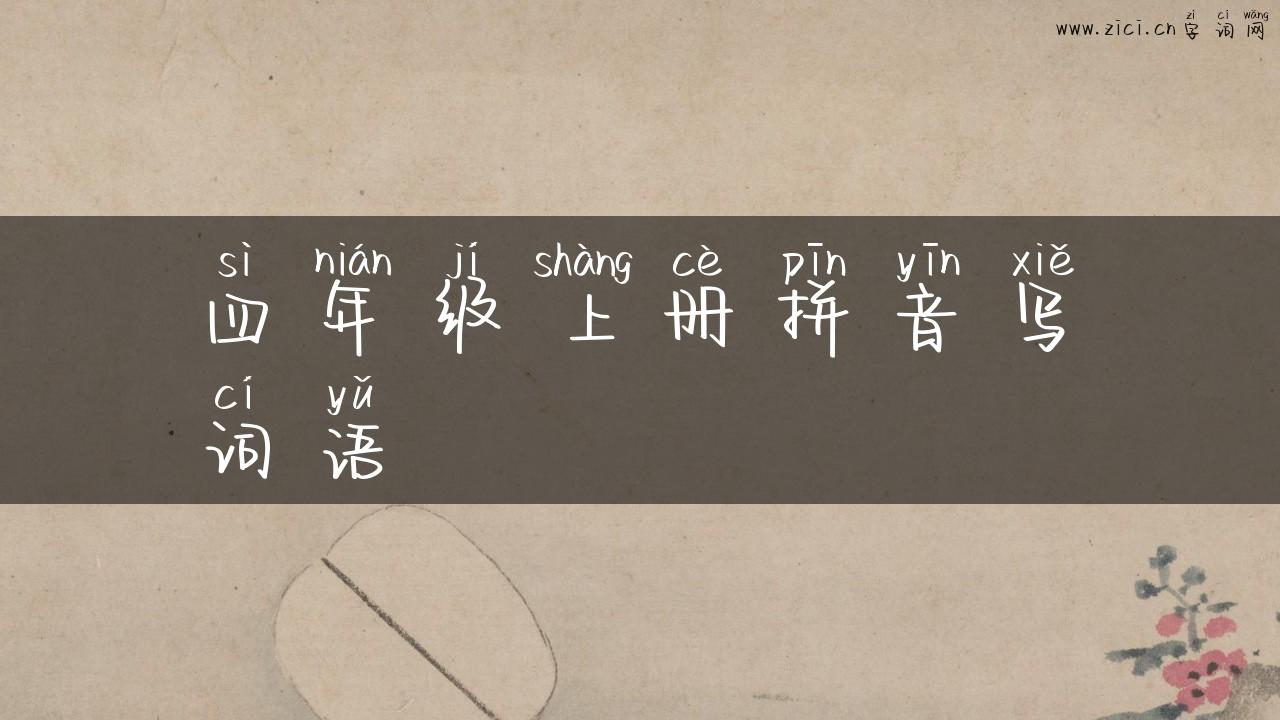 zì cí wǎng
www.zici.cn 字词网
sì nián jí shàng cè pīn yīn xiě
四年级上册拼音写
cí yǔ
词语